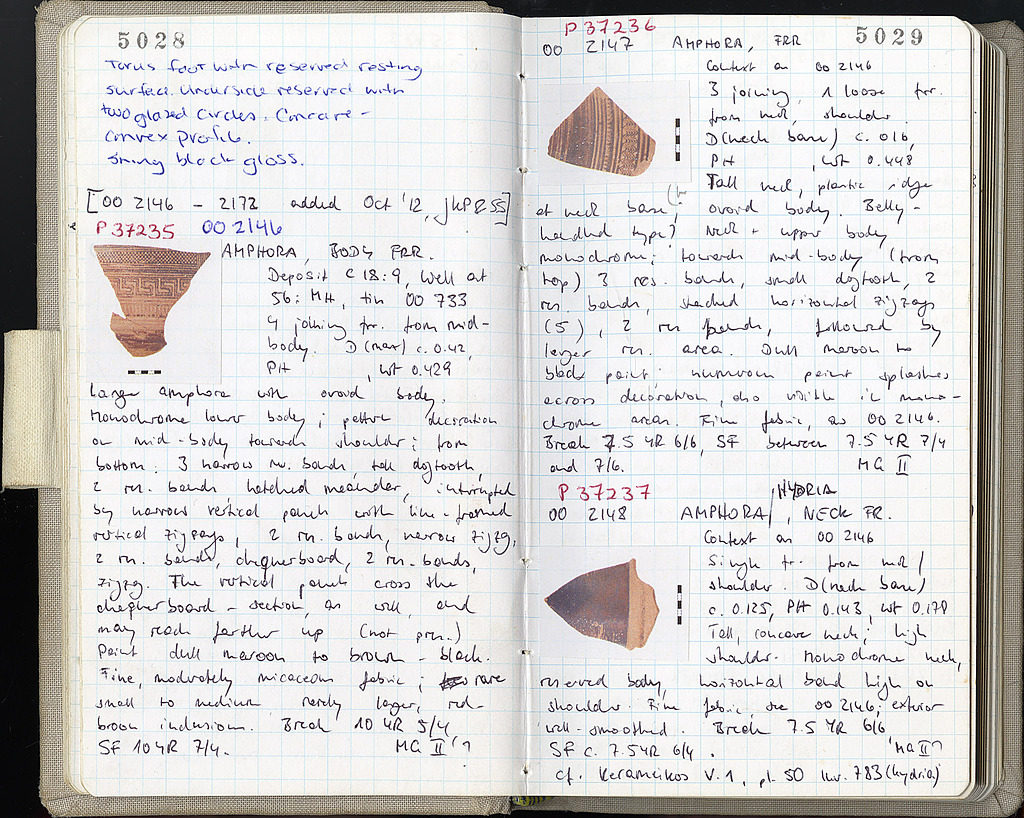 5028
Torus foot with reserved resting
surface. Underside reserved with
two glazed circles. Concave-
convex profile.
Strong black gloss.
[OO 2146 – 2172 added Oct '12, JKP 255]
P 37235 OO 2146
AMPHORA, BODY FRR.
Deposit C 18:9, Well at
56: MH, tin OO 733
4 joining frr. from mid-
body. D (max) c. 0.42,
PH , WT 0.429
Large amphora with ovoid body.
Monochrome lower body; pattern decoration
on mid-body towards shoulder; from
bottom: 3 narrow res. bands, tall dogtooth,
2 res. bands hatched meander, interrupted
by narrow vertical panels with line-framed
vertical zigzags, 2 res. bands, narrow zigzag,
2 res. bands, chequerboard, 2 res. bands,
zigzag. The vertical panels cross the
chequerboard-section, as well, and
may reach farther up (not pres.)
Paint dull maroon to brown-black.
Fine, moderately micaceous fabric; rare
small to medium rarely larger, red-
brown inclusions. Break 10 YR 5/4,
SF 10 YR 7/4. MG II ?
5029
P 37236
OO 2147 AMPHORA, FRR
Context as OO 2146
3 joining, 1 loose frr.
from neck, shoulder.
D (neck base) c. 0.16,
PH , WT 0.448
Tall neck, plastic ridge
at neck base, ovoid body. Belly-
handled type? Neck + upper body
monochrome; towards mid-body (from
top) 3 res. bands, small dogtooth, 2
res. bands, stacked horizontal zigzags
(5), 2 res. bands, followed by
larger res. area. Dull maroon to
black paint; numerous paint splashes
across decoration, also visible in mono-
chrome area. Fine fabric, as OO 2146.
Break 7.5 YR 6/6, SF between 7.5 YR 7/4
and 7/6. MG II
P 37237
OO 2148 AMPHORA/HYDRIA, NECK FR.
Context as OO 2146
Single fr. from neck/
shoulder. D (neck base)
c. 0.125, PH 0.143, WT 0.178
Tall, concave neck; high
shoulder. Monochrome neck,
reserved body, horizontal band high on
shoulder. Fine fabric, see OO 2146; exterior
well-smoothed. Break 7.5 YR 6/6,
SF c. 7.5 YR 6/4. MG II?
cf. Kerameikos V.1, pl. 50 Inv. 783 (hydria)